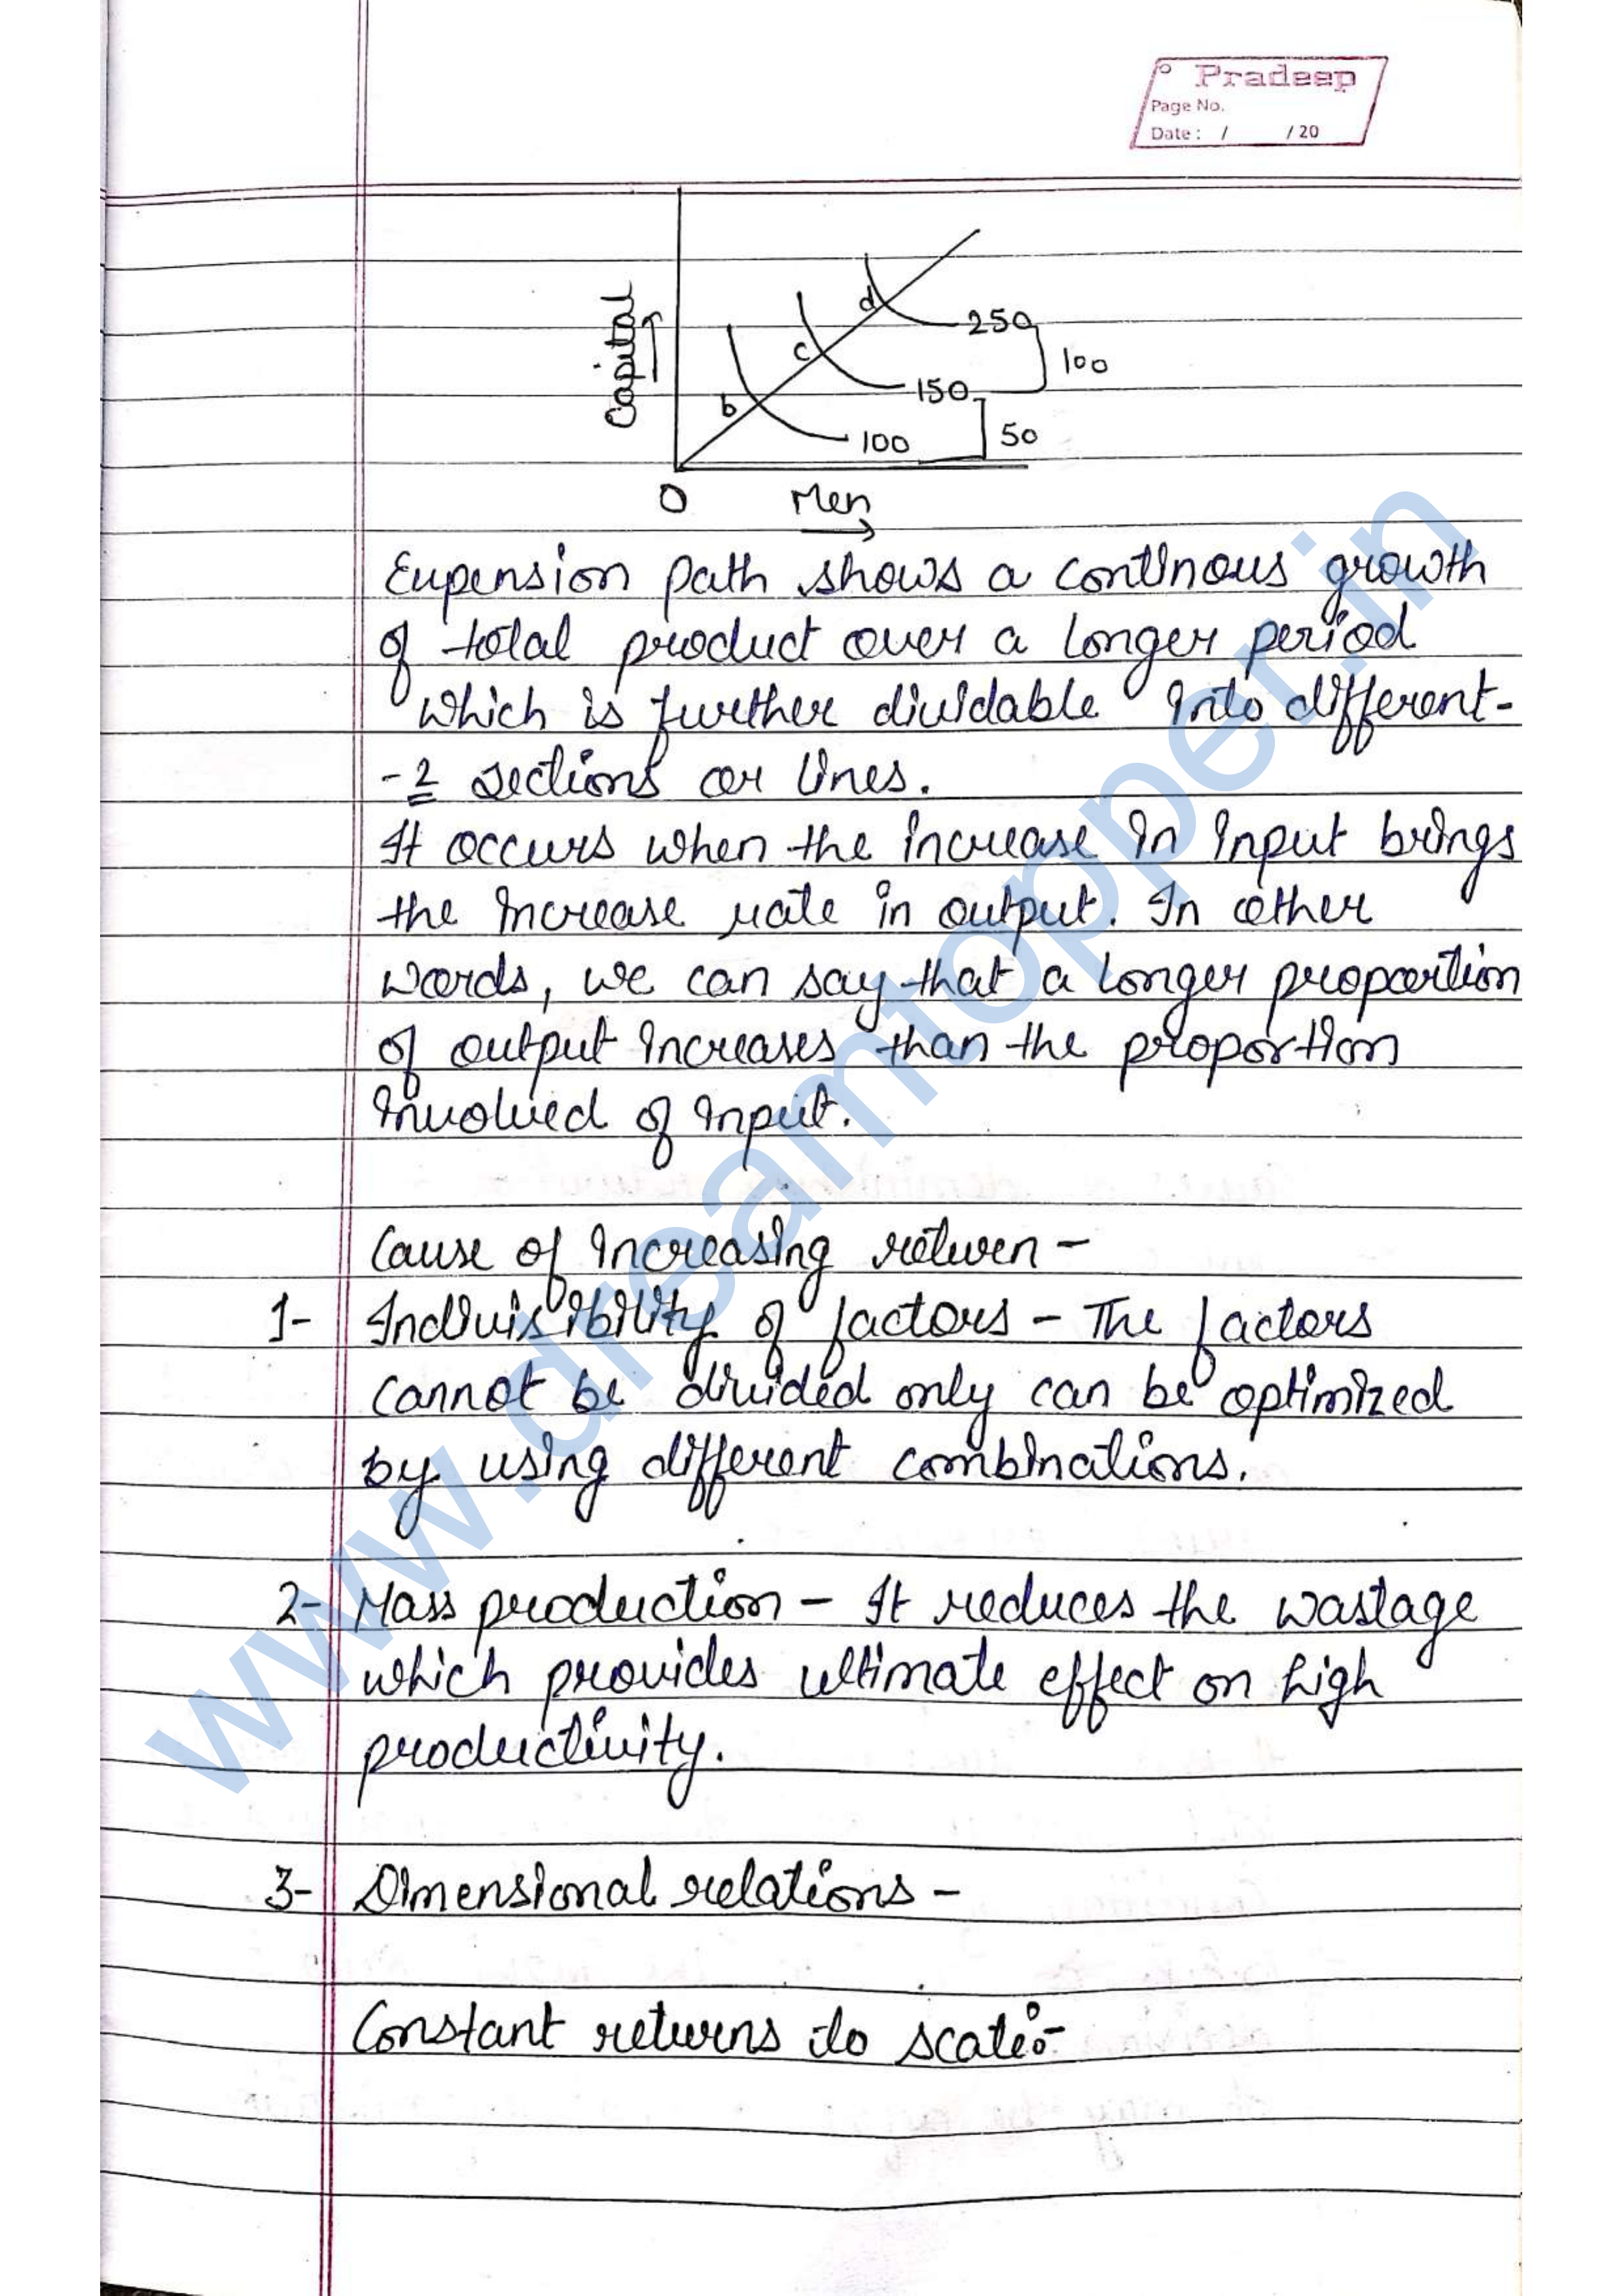 Pradeep
Page No.
Date : / / 20
Capital
d
250
c
100
150
b
100
50
O
Men
Eupension path shows a continous growth
of total product over a longer period
which is further dividable into different-
-2 sections or lines.
It occurs when the increase in input brings
the increase rate in output. In other
words, we can say that a longer proportion
of output increases than the proportion
involved of input.
Cause of increasing return -
1- Indivisibility of factors - The factors
cannot be divided only can be optimized
by using different combinations.
2- Mass production - It reduces the wastage
which provides ultimate effect on high
productivity.
3- Dimensional relations -
Constant returns to scale:-
www.dreamtopper.in